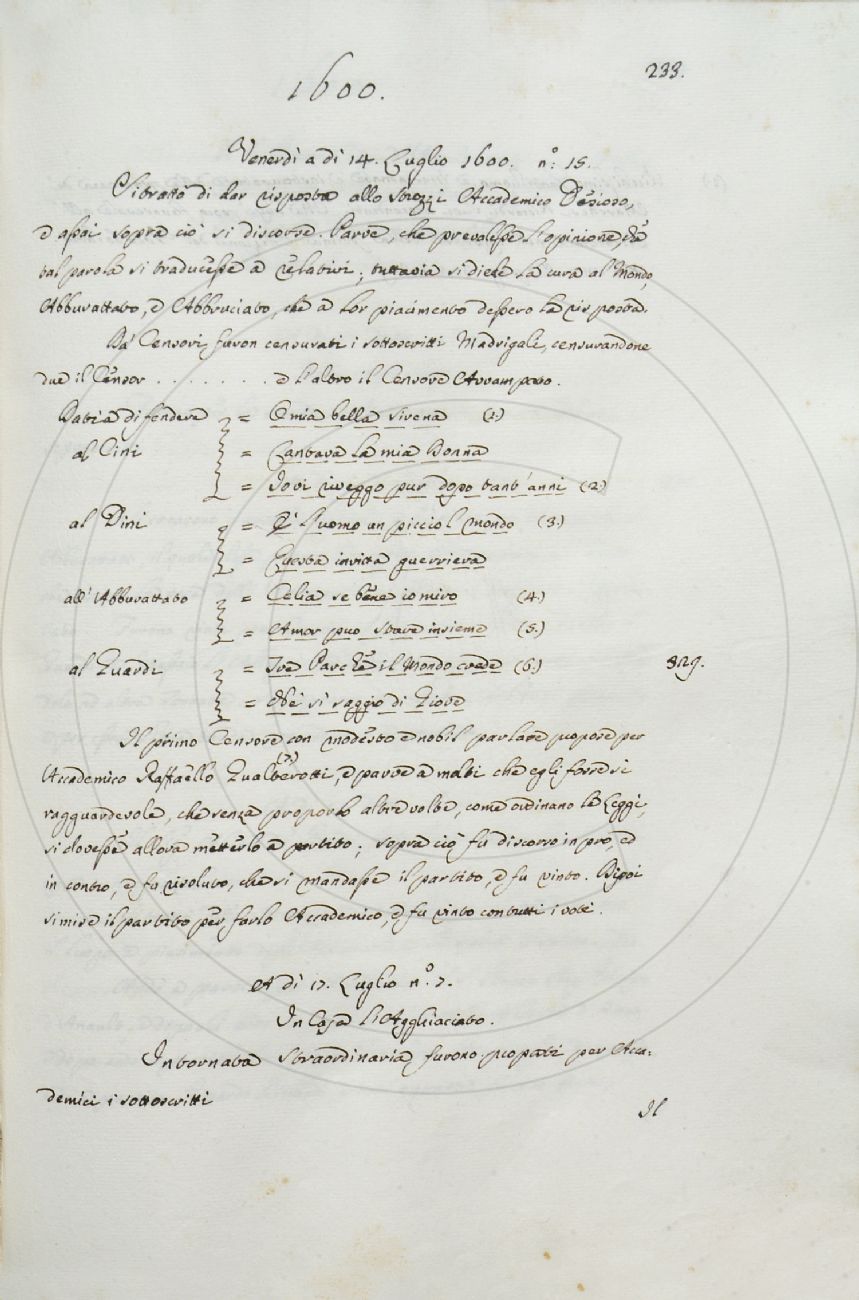 233.
1600.
Venerdì a dì 14. Luglio 1600. nº. 15.
Si trattò di dar risposta allo Strozzi Accademico Desioso,
e assai sopra ciò si discorse. Parve, che prevalesse l'opinione che
tal parola si traducesse a relativi; tuttavia si diede la cura al Mondo,
Abburattato, e Abbruciato, che a lor piacimento dessero la risposta.
Da' Censori furon censurati i sottoscritti Madrigali, censurandone
due il Censor . . . . . . . e l'altro il Censore Avvampato.
Data a difendere = O mia bella sirena (1.)
al Cini = Cantava la mia Donna
= Io vi riveggo pur dopo tant'anni (2.)
al Dini = È l'uomo un picciol mondo (3.)
= Questa invitta guerriera
all'Abburattato = Celia se bene io miro (4.)
= Amor puo stare insieme (5.)
al Guardi = Tre Parche il Mondo crede (6.) 329.
= Nè sì raggio di Giove
Il primo Censore con modesto e nobil parlare propose per
Accademico Raffaello Gualterotti, (7.) e parve a molti che egli fosse sì
ragguardevole, che senza proporlo altre volte, come ordinano le Leggi,
si dovesse allora metterlo a partito; sopra ciò fù discorso in pro, ed
in contro, e fu risoluto, che si mandasse il partito, e fu vinto. Dipoi
si mise il partito per farlo Accademico, e fu vinto con tutti i voti.
A dì 17. Luglio nº. 7.
In Casa l'Agghiacciato.
In tornata straordinaria furono proposti per Acca=
demici i sottoscritti
Il